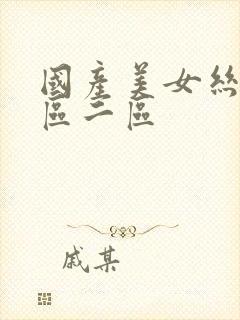 國產美女絲
區二區
戚某